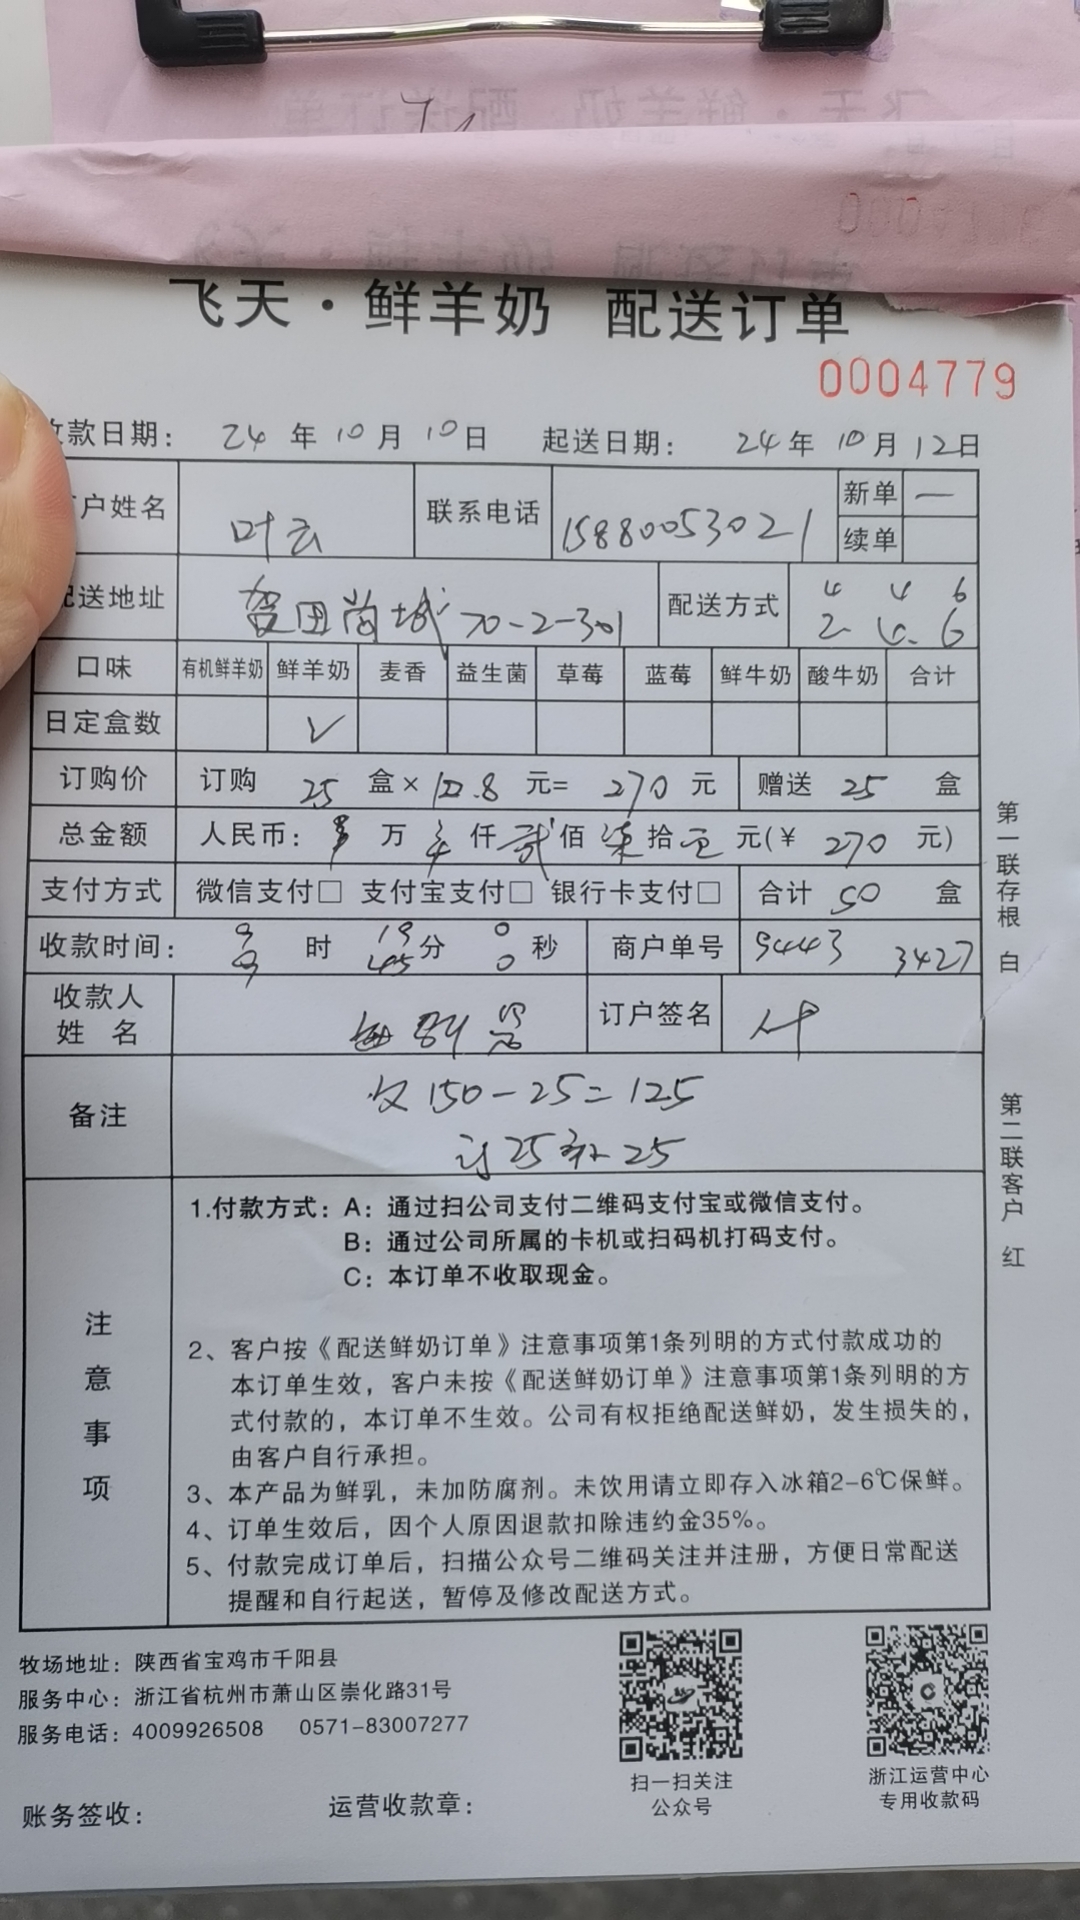 飞天·鲜羊奶 配送订单
0004779
收款日期： 24 年 10 月 10 日 起送日期： 24 年 10 月 12 日
户姓名 叶云 联系电话 15880053021 新单 一
续单
配送地址 贺田尚城 70-2-301 配送方式 4 4 6
2. 6
口味 有机鲜羊奶 鲜羊奶 麦香 益生菌 草莓 蓝莓 鲜牛奶 酸牛奶 合计
日定盒数 √
订购价 订购 25 盒× 10.8 元= 270 元 赠送 25 盒
总金额 人民币： 万 仟 贰 佰 柒 拾 元(¥ 270 元)
支付方式 微信支付□ 支付宝支付□ 银行卡支付□ 合计 50 盒
收款时间： 9 时 19 分 0 秒 商户单号 9443 3427
9 45 0
收款人
姓 名 订户签名 叶
备注 150-25=125
订25补25
1.付款方式：A：通过扫公司支付二维码支付宝或微信支付。
B：通过公司所属的卡机或扫码机打码支付。
C：本订单不收取现金。
注意事项
2、客户按《配送鲜奶订单》注意事项第1条列明的方式付款成功的
本订单生效，客户未按《配送鲜奶订单》注意事项第1条列明的方
式付款的，本订单不生效。公司有权拒绝配送鲜奶，发生损失的，
由客户自行承担。
3、本产品为鲜乳，未加防腐剂。未饮用请立即存入冰箱2-6℃保鲜。
4、订单生效后，因个人原因退款扣除违约金35%。
5、付款完成订单后，扫描公众号二维码关注并注册，方便日常配送
提醒和自行起送，暂停及修改配送方式。
第一联存根 白
第二联客户 红
牧场地址：陕西省宝鸡市千阳县
服务中心：浙江省杭州市萧山区崇化路31号
服务电话：4009926508 0571-83007277
扫一扫关注
公众号
浙江运营中心
专用收款码
账务签收： 运营收款章：